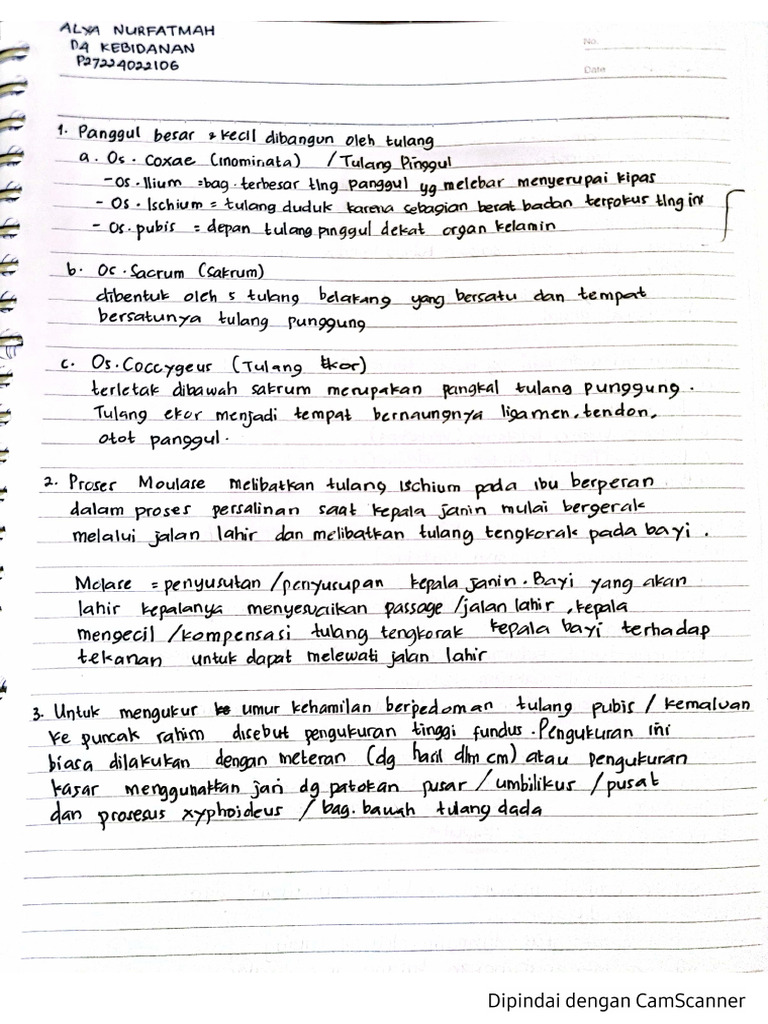 ALYA NURFATMAH
D4 KEBIDANAN
P27224022106
No.
Date
1. Panggul besar & kecil dibangun oleh tulang
a. Os. Coxae (inominata) / Tulang Pinggul
- Os. Ilium = bag. terbesar tlng panggul yg melebar menyerupai kipas
- Os. Ischium = tulang duduk karena sebagian berat badan terfokus tlng ini
- Os. pubis = depan tulang pinggul dekat organ kelamin
b. Os. Sacrum (sakrum)
dibentuk oleh 5 tulang belakang yang bersatu dan tempat
bersatunya tulang punggung
c. Os. Coccygeus (Tulang Ekor)
terletak dibawah sakrum merupakan pangkal tulang punggung.
Tulang ekor menjadi tempat bernaungnya ligamen, tendon,
otot panggul.
2. Proses Moulase melibatkan tulang Ischium pada ibu berperan
dalam proses persalinan saat kepala janin mulai bergerak
melalui jalan lahir dan melibatkan tulang tengkorak pada bayi.
Molase = penyusutan / penyusupan kepala janin. Bayi yang akan
lahir kepalanya menyesuaikan passage / jalan lahir, kepala
mengecil / kompensasi tulang tengkorak kepala bayi terhadap
tekanan untuk dapat melewati jalan lahir
3. Untuk mengukur umur kehamilan berpedoman tulang pubis / kemaluan
ke puncak rahim disebut pengukuran tinggi fundus. Pengukuran ini
biasa dilakukan dengan meteran (dg hasil dlm cm) atau pengukuran
kasar menggunakan jari dg patokan pusar / umbilikus / pusat
dan prosesus xyphoideus / bag. bawah tulang dada
Dipindai dengan CamScanner